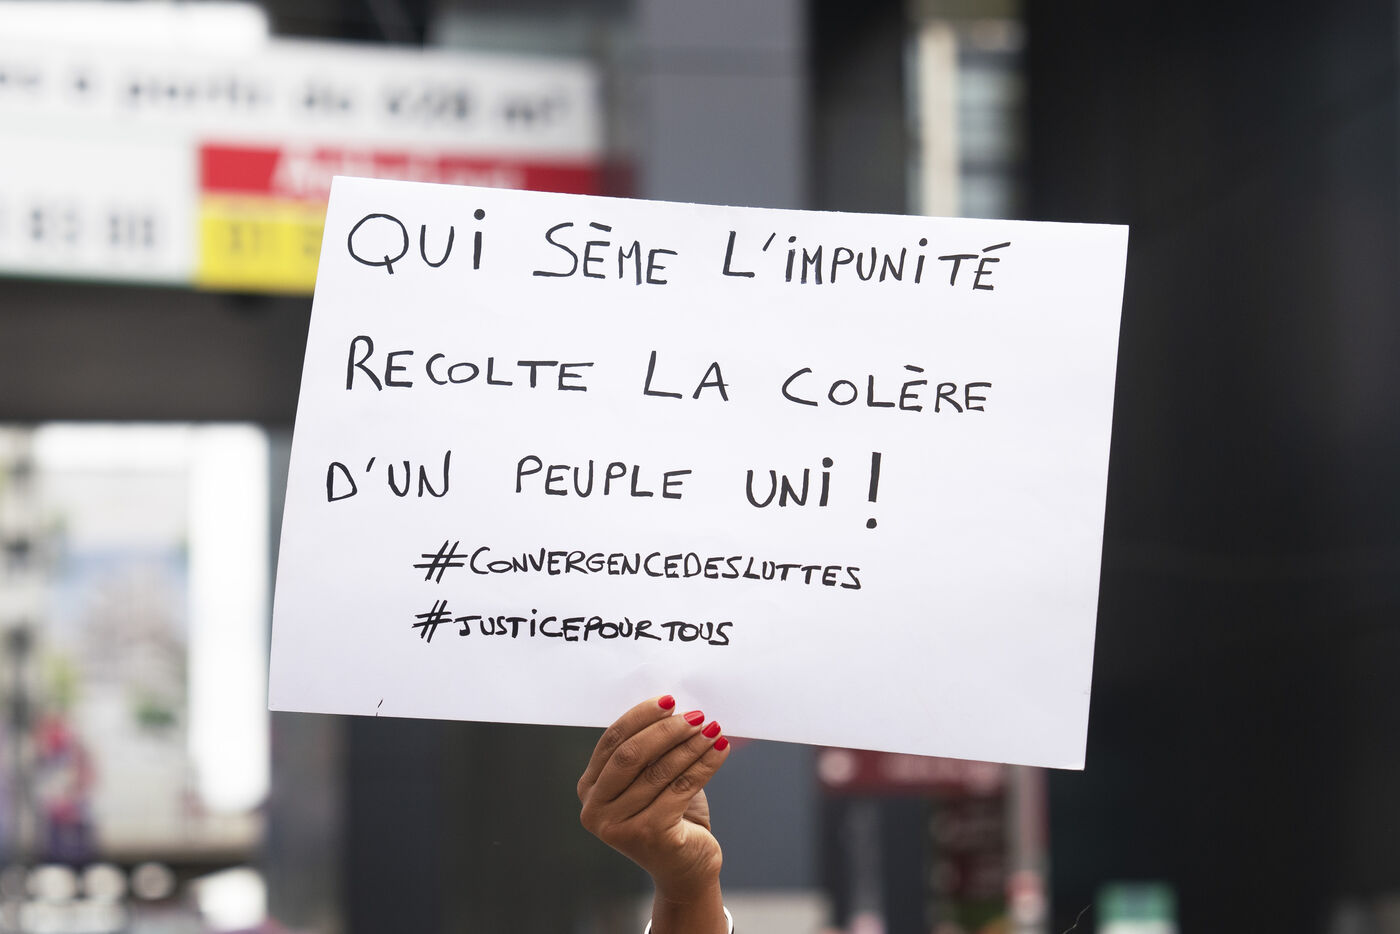 à partir de
QUI SÈME L'IMPUNITÉ
RECOLTE LA COLÈRE
D'UN PEUPLE UNI !
#CONVERGENCEDESLUTTES
#JUSTICEPOURTOUS